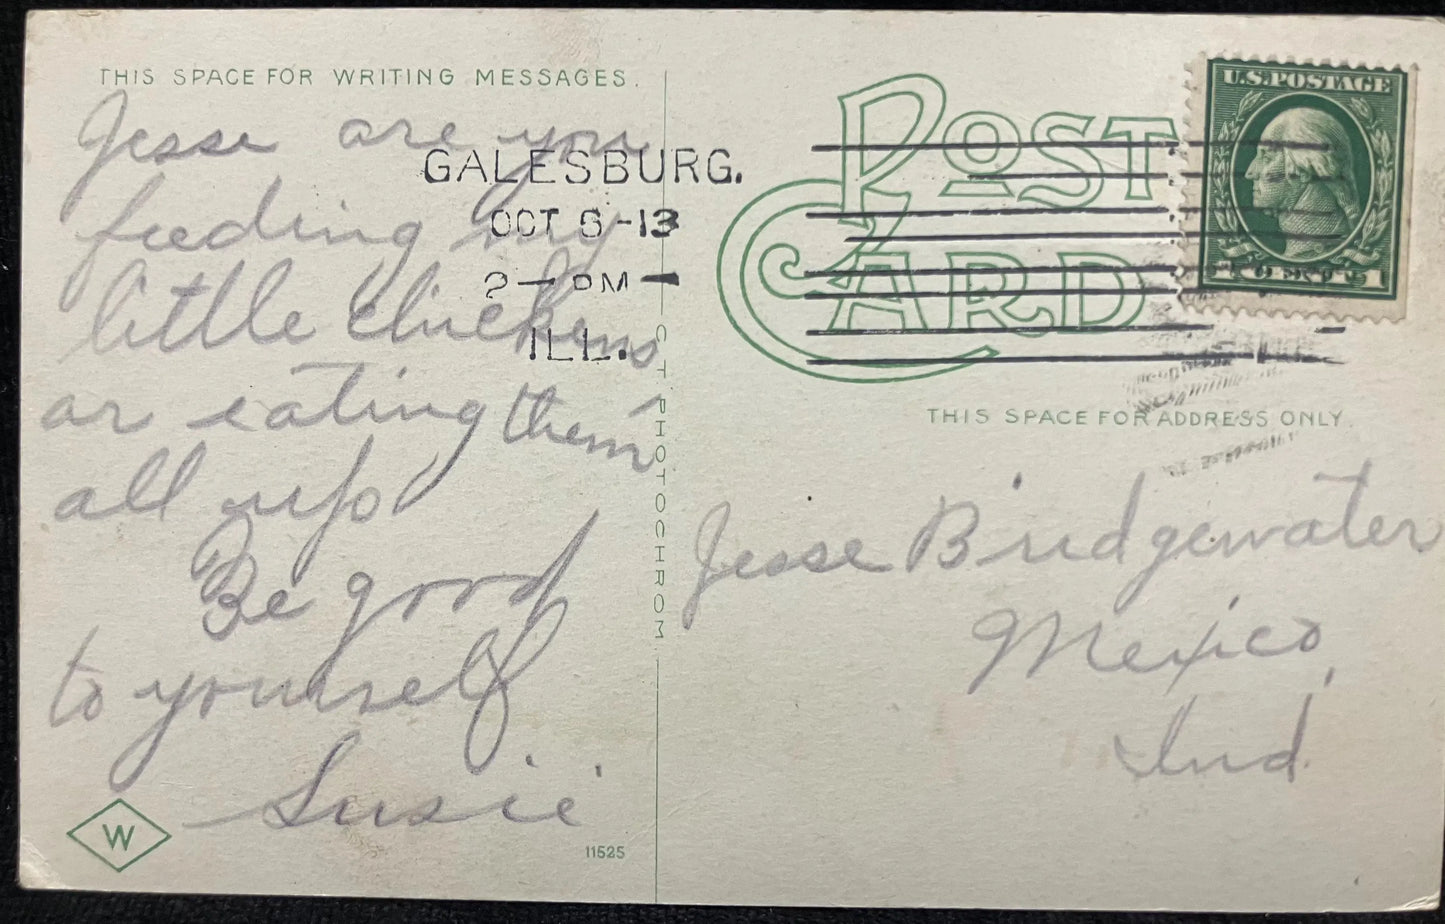 THIS SPACE FOR WRITING MESSAGES.
Jesse are you
feeding my
little chickens
or eating them
all up
Be good
to yourself
Susie
W
11525
C T PHOTOCHROM
GALESBURG.
OCT 6-13
2- PM-
ILL.
POST
CARD
U.S. POSTAGE
1 CENT 1
THIS SPACE FOR ADDRESS ONLY.
Jesse Bridgewater
Mexico,
Ind.